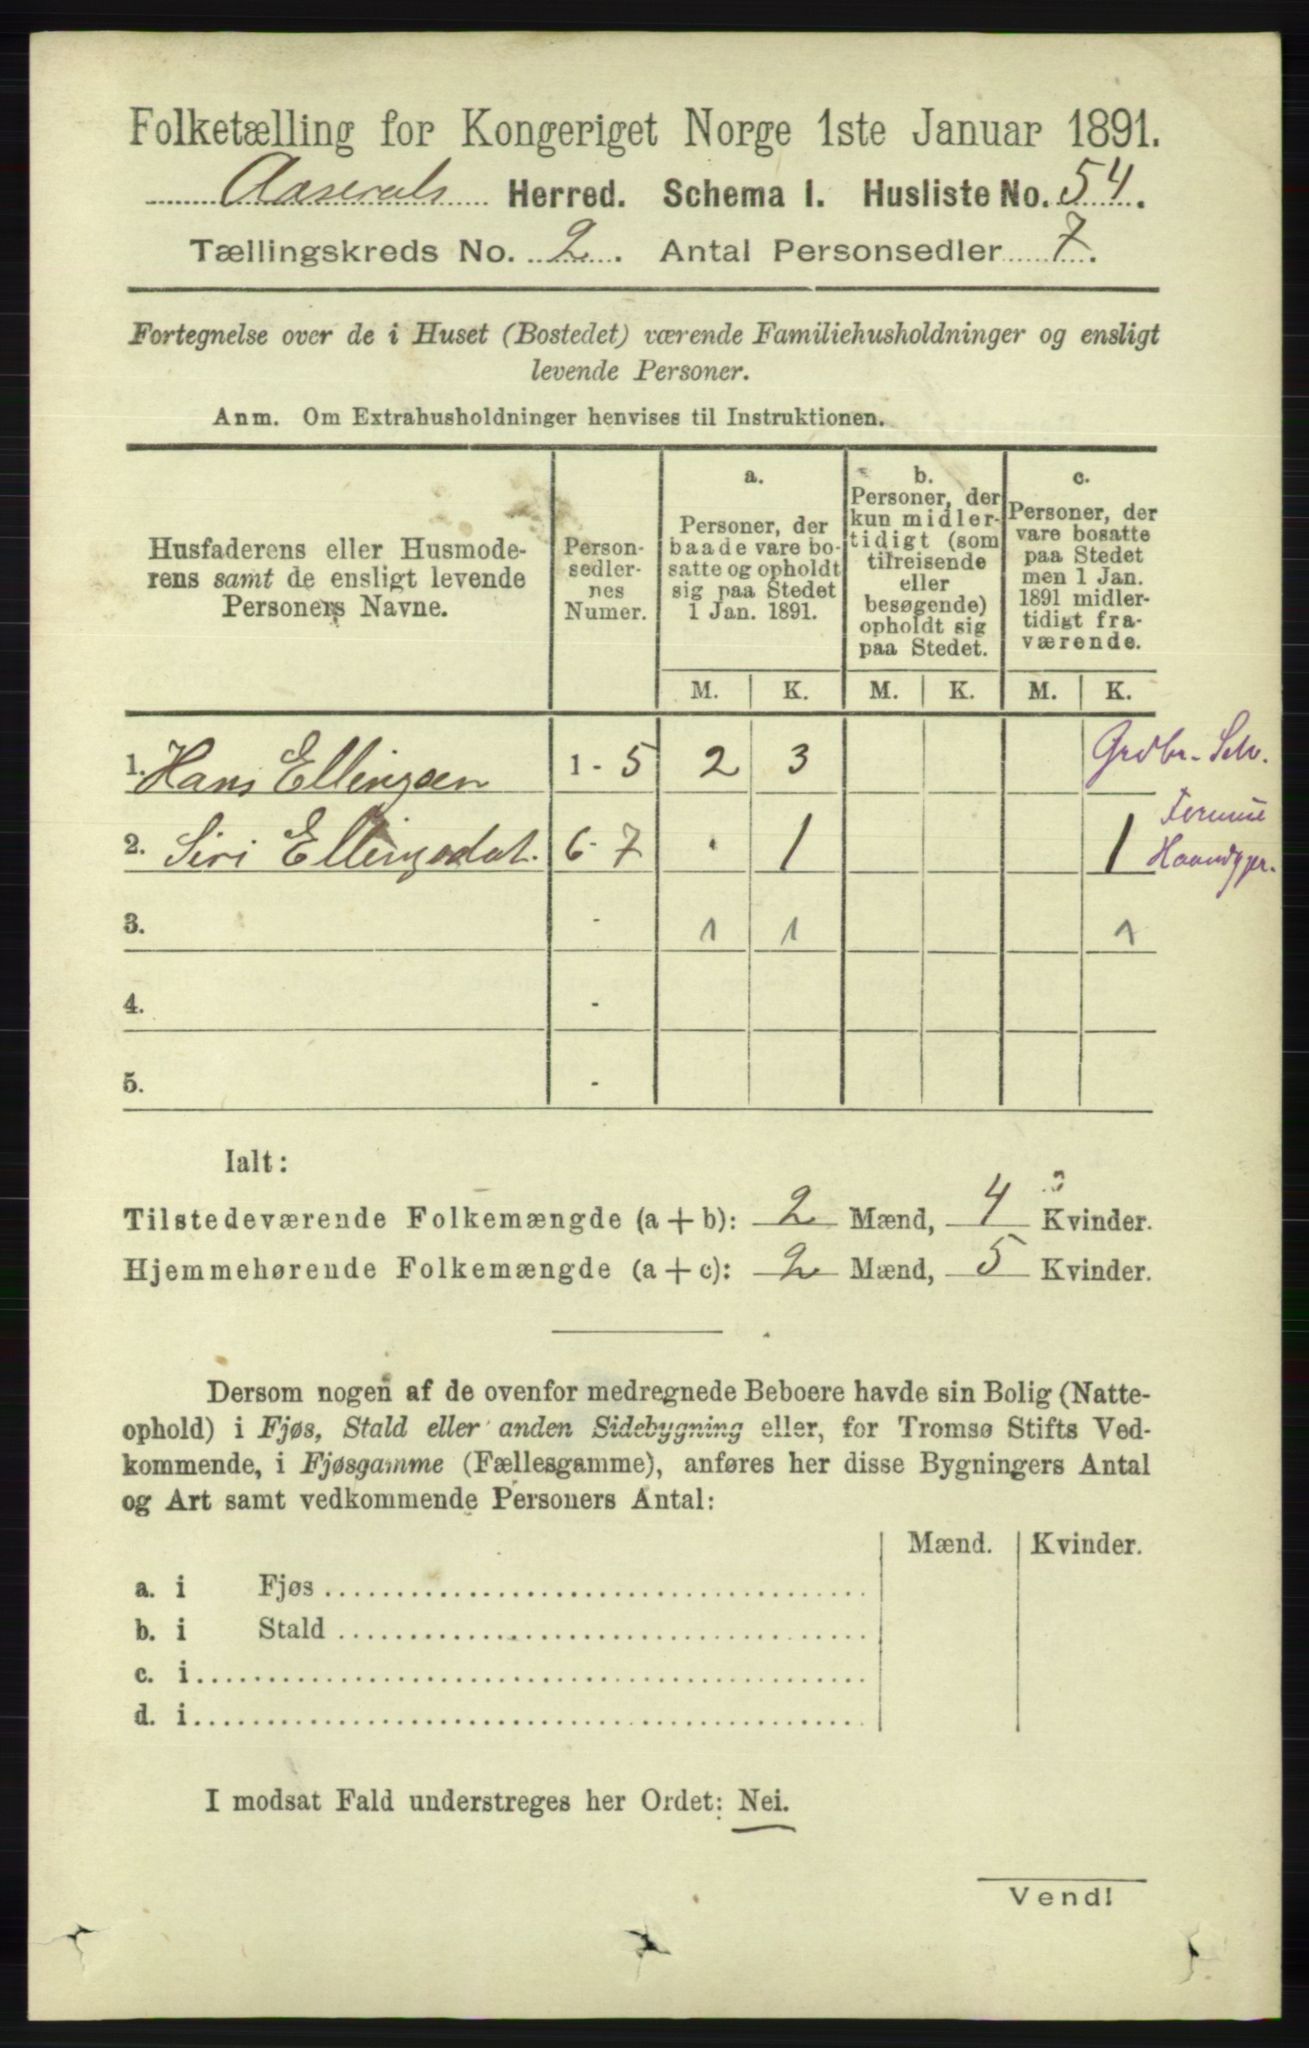 Folketælling for Kongeriget Norge 1ste Januar 1891.
Aaserals Herred. Schema I. Husliste No. 54.
Tællingskreds No. 2. Antal Personsedler 7.
Fortegnelse over de i Huset (Bostedet) værende Familiehusholdninger og ensligt
levende Personer.
Anm. Om Extrahusholdninger henvises til Instruktionen.
Husfaderens eller Husmode-
rens samt de ensligt levende
Personers Navne.
Person-
sedler-
nes
Numer.
a.
Personer, der
baade vare bo-
satte og opholdt
sig paa Stedet
1 Jan. 1891.
b.
Personer, der
kun midler-
tidigt (som
tilreisende
eller
besøgende)
opholdt sig
paa Stedet.
c.
Personer, der
vare bosatte
paa Stedet
men 1 Jan.
1891 midler-
tidigt fra-
værende.
M. K. M. K. M. K.
1. Hans Ellingsen 1 - 5 2 3 Grdbr. Selv.
2. Siri Ellingsdat. 6 - 7 . 1 1
Haandgjer.
3. - 1 1 1
4. -
5. -
Ialt:
3
Tilstedeværende Folkemængde (a + b): 2 Mænd, 4 Kvinder.
Hjemmehørende Folkemængde (a + c): 2 Mænd, 5 Kvinder.
Dersom nogen af de ovenfor medregnede Beboere havde sin Bolig (Natte-
ophold) i Fjøs, Stald eller anden Sidebygning eller, for Tromsø Stifts Ved-
kommende, i Fjøsgamme (Fællesgamme), anføres her disse Bygningers Antal
og Art samt vedkommende Personers Antal:
Mænd. Kvinder.
a. i Fjøs
b. i Stald
c. i
d. i
I modsat Fald understreges her Ordet: Nei.
Vend!